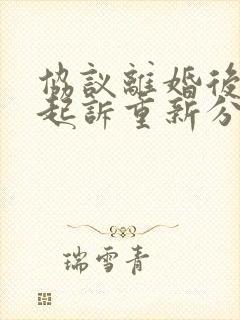 協議離婚後
起訴重新分
瑞雪青